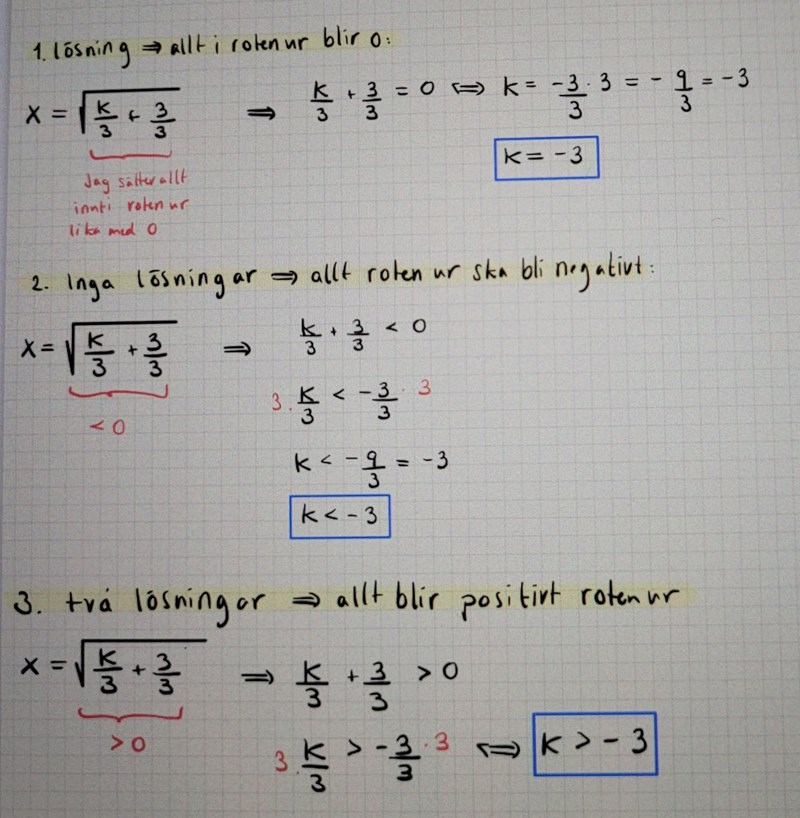 1. lösning ⇒ allt i roten ur blir 0:
x = √(k/3 + 3/3) ⇒ k/3 + 3/3 = 0 ⇔ k = -3/3 · 3 = - 9/3 = -3
k = -3
Jag sätter allt
innti roten ur
lika med 0
2. Inga lösningar ⇒ allt roten ur ska bli negativt:
x = √(k/3 + 3/3) ⇒ k/3 + 3/3 < 0
< 0
3 · k/3 < -3/3 · 3
k < -9/3 = -3
k < -3
3. två lösningar ⇒ allt blir positivt roten ur
x = √(k/3 + 3/3) ⇒ k/3 + 3/3 > 0
> 0
3 · k/3 > -3/3 · 3 ⇔ k > -3